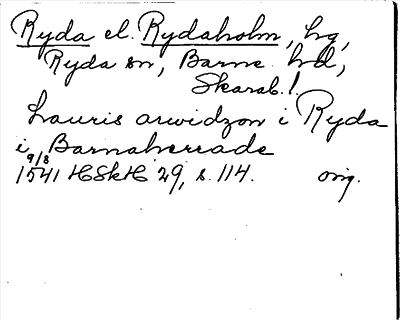 Ryda el. Rydaholm, hg,
Ryda sn, Barne hd,
Skarab. l.
Lauris arwidzon i Ryda
i Barnaherrade
9/8
1541 HSkH 29, s. 114. orig.